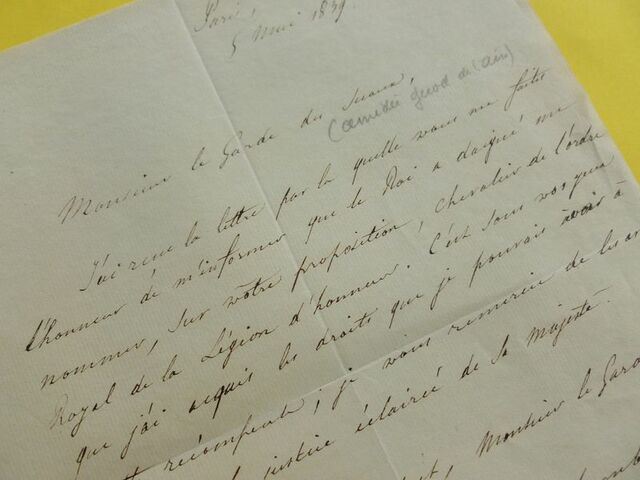 Paris,
5 Mai 1839.
Monsieur le Garde des Sceaux,
(amédée Girod de l'ain)
J'ai reçu la lettre par la quelle vous me faites
l'honneur de m'informer que le Roi a daigné me
nommer, sur votre proposition, chevalier de l'ordre
Royal de la Légion d'honneur. C'est sous vos yeux
que j'ai acquis les droits que je pouvais avoir à
récompense; je vous remercie de les
justice éclairée de Sa Majesté.
Monsieur le Gard